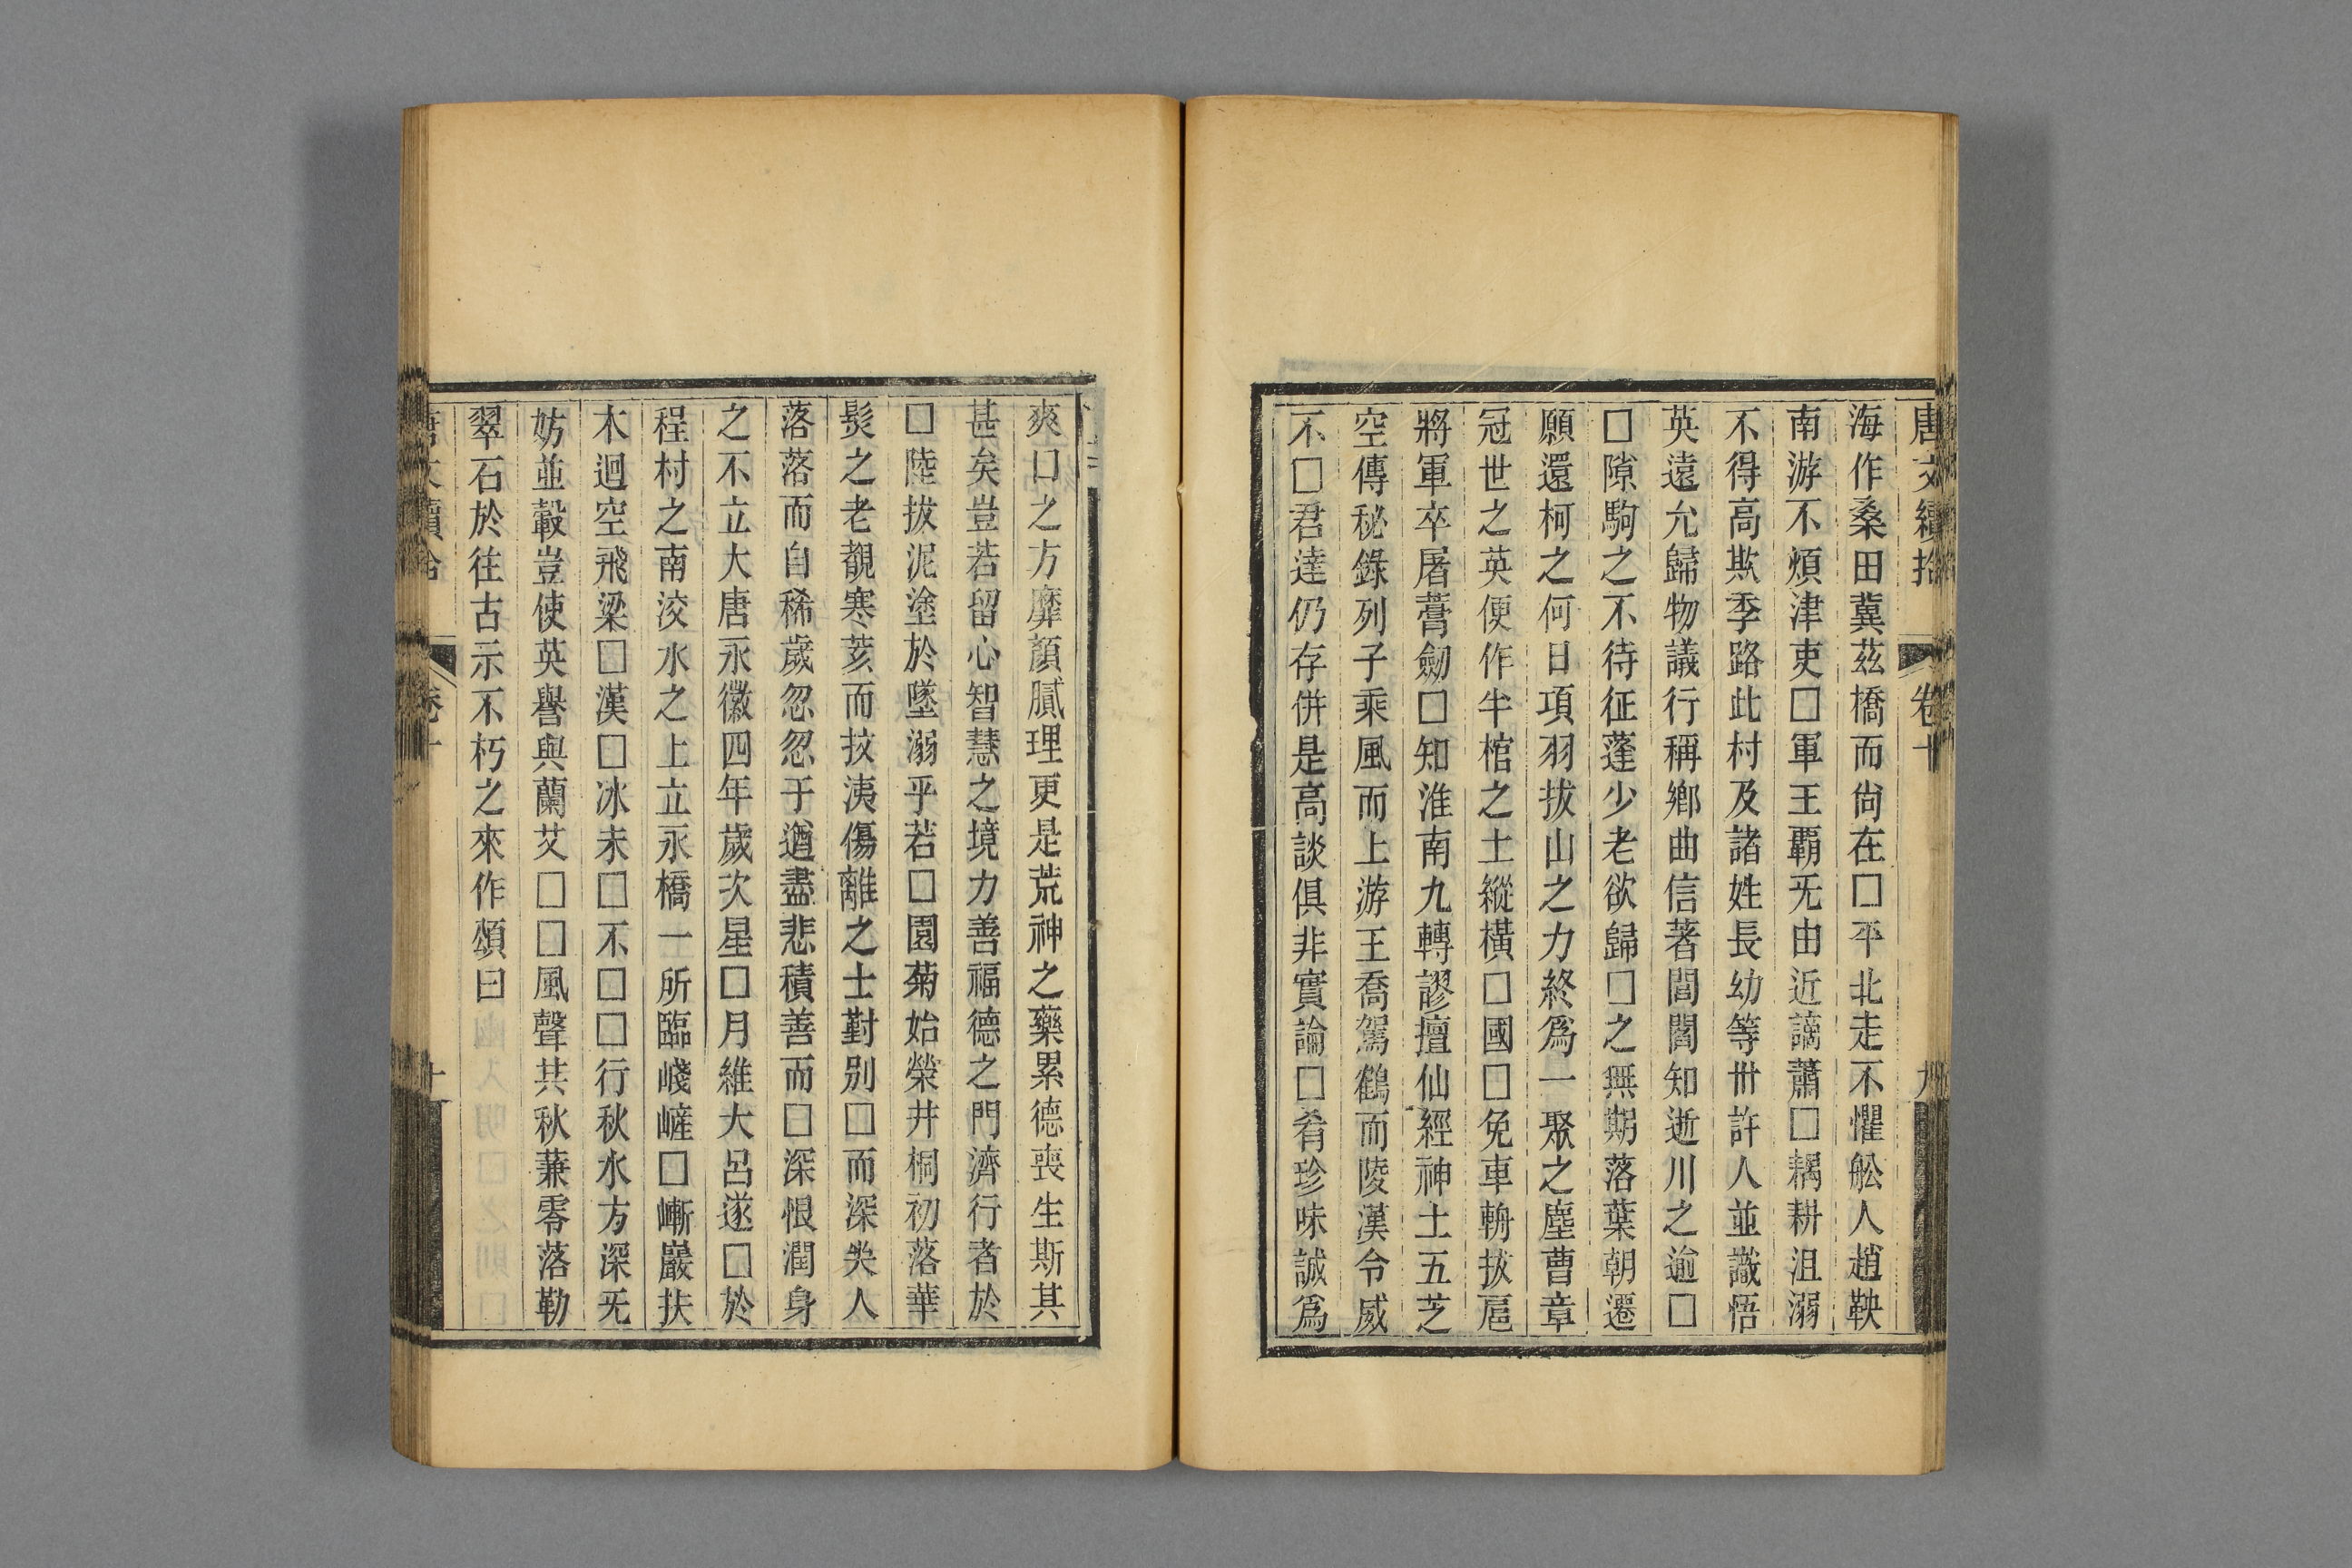 唐文續拾 卷十 九
海作桑田冀茲橋而尙在□平北走不懼舩人趙鞅
南游不煩津吏□軍王覇旡由近謫蕭□耦耕沮溺
不得高欺季路此村及諸姓長幼等卅許人並識悟
英遠允歸物議行稱鄉曲信著閭閻知逝川之逾□
□隙駒之不待征蓬少老欲歸□之無期落葉朝遷
願還柯之何日項羽拔山之力終爲一聚之塵曹章
冠世之英便作半棺之土縱橫□國□免車輈拔扈
將軍卒屠薵劒□知淮南九轉謬擅仙經神士五芝
空傳秘錄列子乘風而上游王喬駕鶴而陵漢令威
不□君達仍存併是高談俱非實論□肴珍味誠爲
爽口之方靡顏膩理更是荒神之藥累德喪生斯其
甚矣豈若留心智慧之境力善福德之門濟行者於
□陸拔泥塗於墜溺乎若□園菊始榮井桐初落華
髮之老覩寒荄而抆洟傷離之士對別□而深尖人
落落而自稀歲忽忽于遒盡悲積善而□深恨潤身
之不立大唐永徽四年歲次星□月維大呂遂□於
程村之南洨水之上立永橋一所臨嶘嵼□嶃巖扶
木迴空飛梁□漢□冰未□不□□行秋水方深旡
妨並轂豈使英譽與蘭艾□□風聲共秋蒹零落勒
翠石於往古示不朽之來作頌曰
唐文續拾 卷十 十